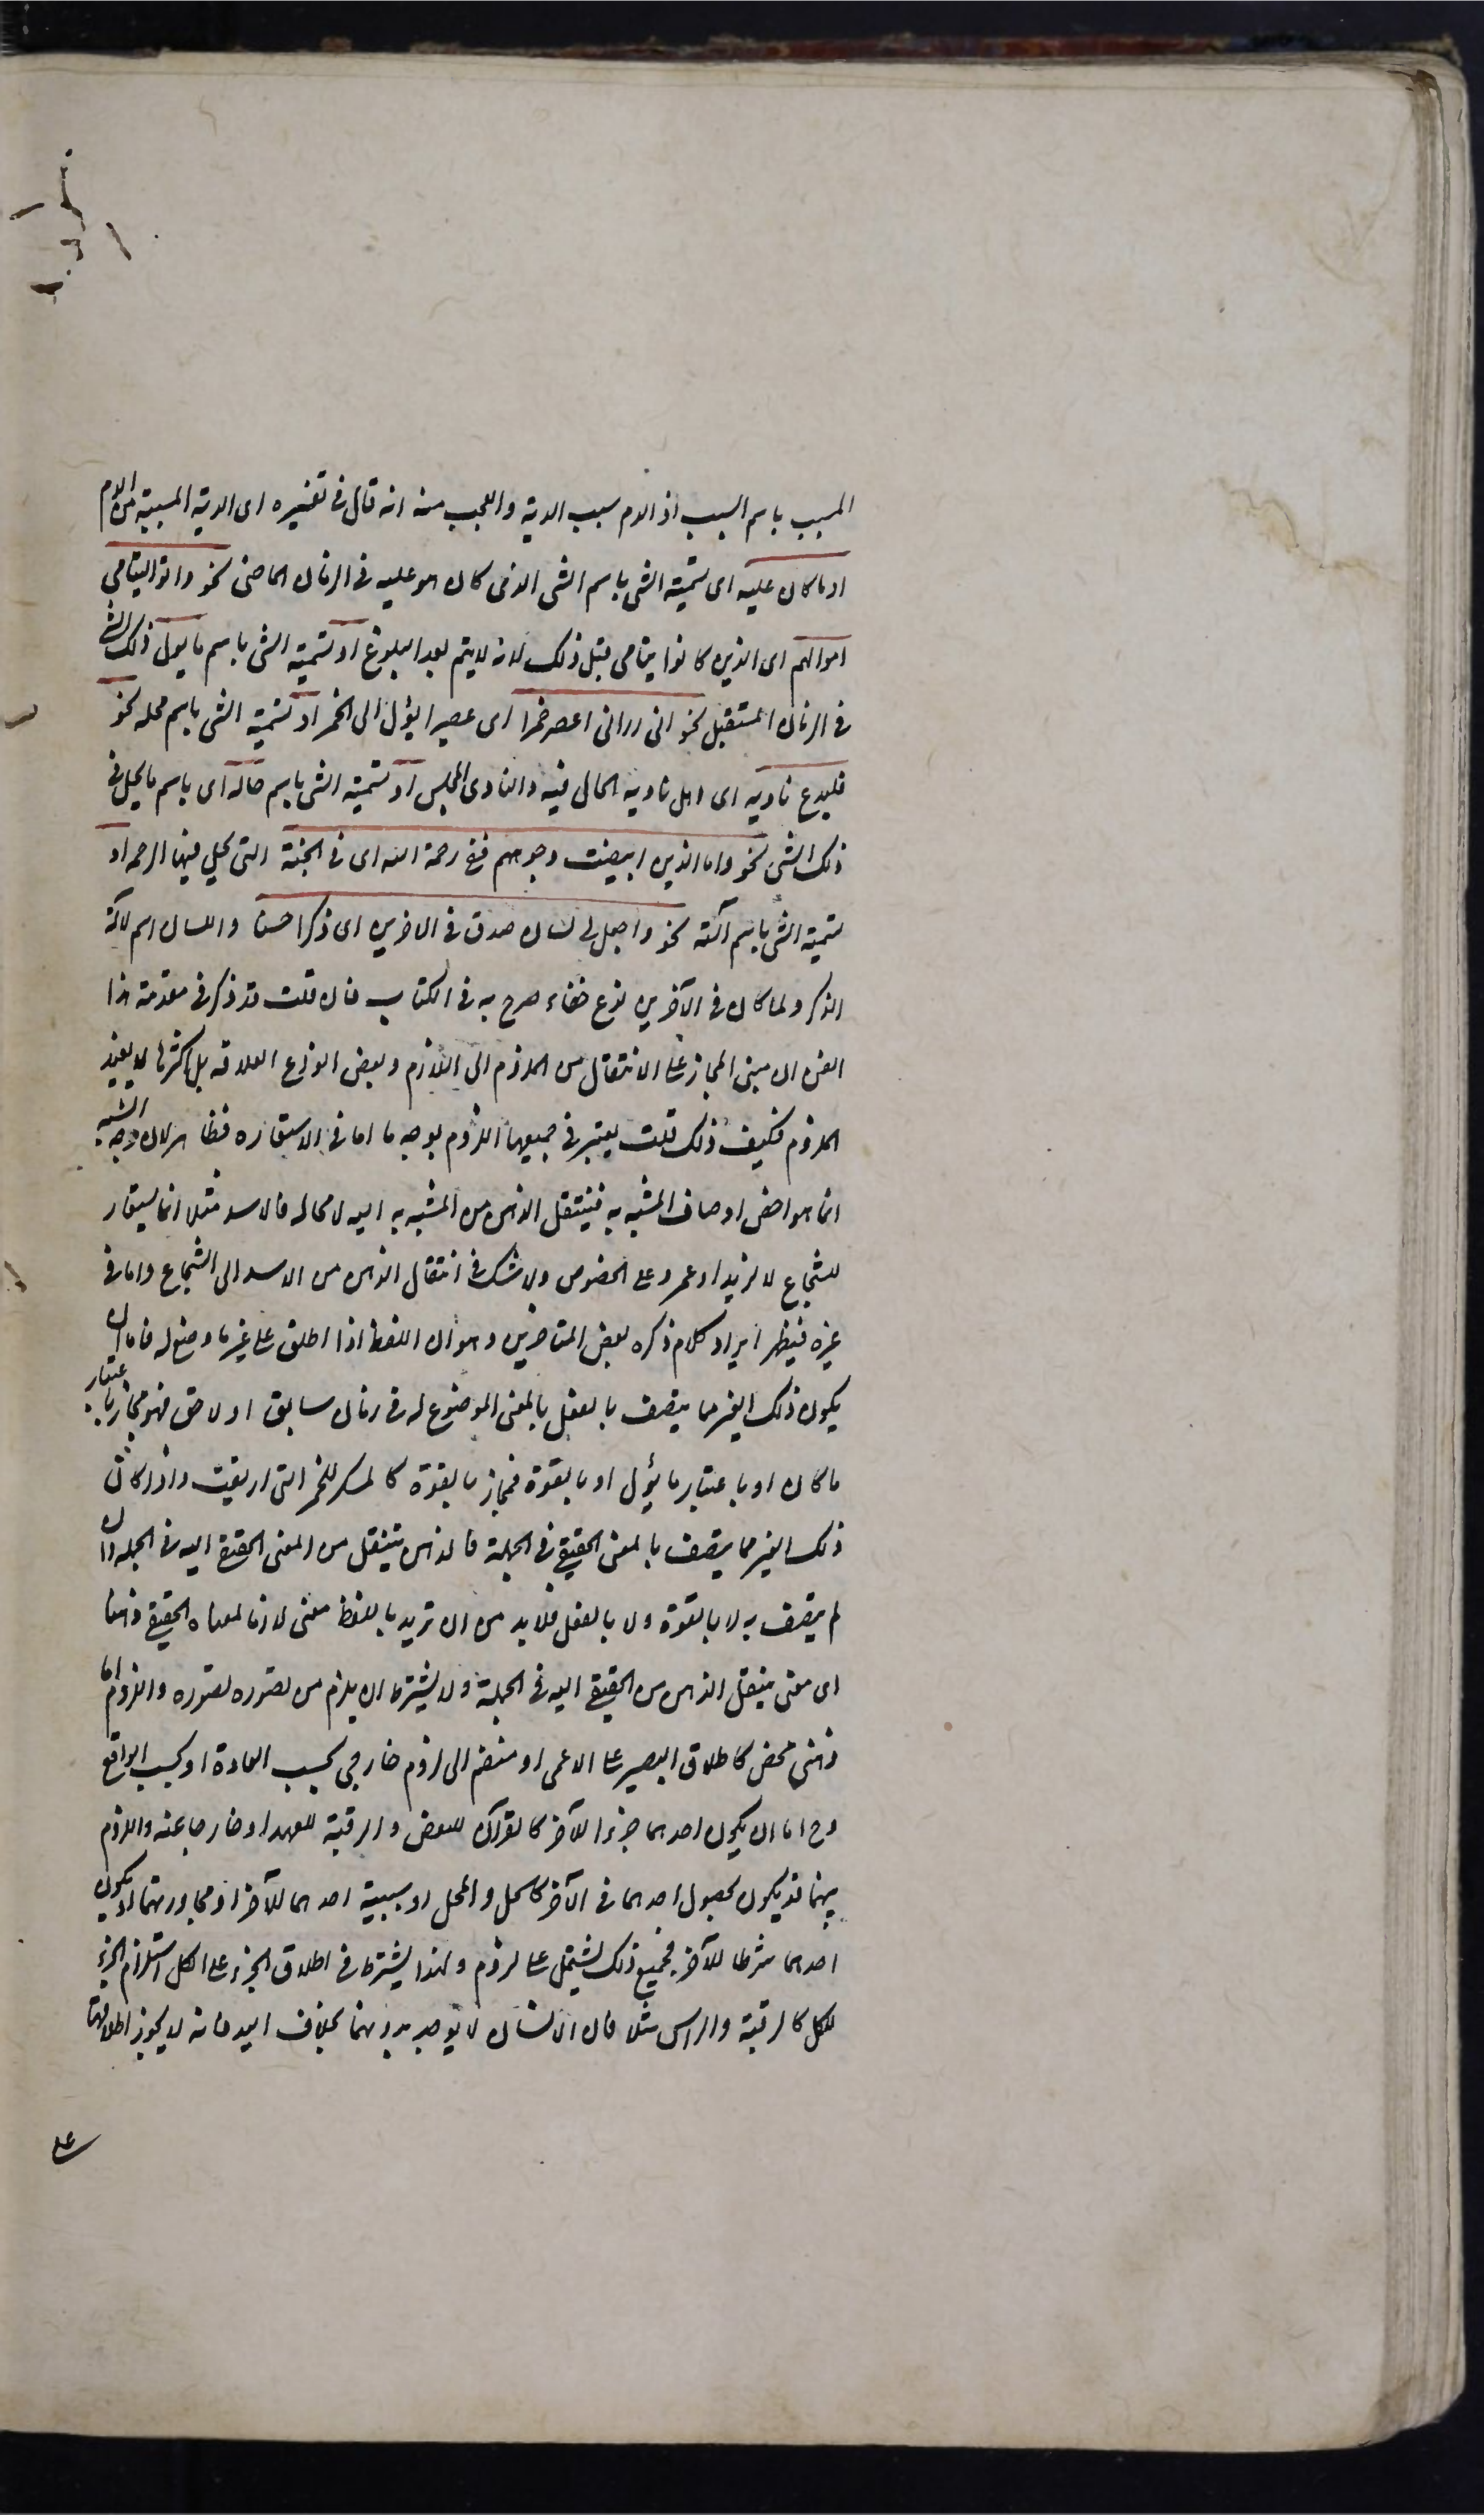 المسبب باسم السبب اذ الدم سبب الدية والعجب منه انه قال فى تفسيره اى الدية المسببة من الدم
او ما كان عليه اى تسمية الشى باسم الشى الذى كان هو عليه فى الزمان الماضى نحو واتوا اليتامى
اموالهم اى الذين كانوا يتامى قبل ذلك لانه لا يتم بعد البلوغ او تسمية الشى باسم ما يؤل ذلك الشى
فى الزمان المستقبل نحو انى ارانى اعصر خمرا اى عصيرا يؤل الى الخمر او تسمية الشى باسم محله نحو
فليدع ناديه اى اهل ناديه الحال فيه والنادى المجلس او تسمية الشى باسم حاله اى باسم ما يحل فى
ذلك الشى نحو واما الذين ابيضت وجوههم ففى رحمة الله اى فى الجنة التى يحل فيها الرحمة او
تسمية الشى باسم آلته نحو واجعل لى لسان صدق فى الاخرين اى ذكرا حسنا واللسان اسم لآلة
الذكر ولما كان فى الآخرين نوع خفاء صرح به فى الكتاب فان قلت قد ذكر فى مقدمة هذا
الفن ان مبنى المجاز على الانتقال من الملزوم الى اللازم وبعض انواع العلاقة بل اكثرها لا يفيد
اللزوم فكيف ذلك قلت يعتبر فى جميعها اللزوم بوجه ما اما فى الاستعارة فظاهر لان وجه الشبه
انما هو اخص اوصاف المشبه به فينتقل الذهن من المشبه به اليه لا محالة فالاسد مثلا انما يستعار
للشجاع لا لزيد او عمرو على الخصوص ولا شك فى انتقال الذهن من الاسد الى الشجاع واما فى
غيره فيظهر ايراد كلام ذكره بعض المتاخرين وهو ان اللفظ اذا اطلق على غير ما وضع له فاما ان
يكون ذلك الغير مما يتصف بالفعل بالمعنى الموضوع له فى زمان سابق او لاحق فهو مجاز باعتبار
ما كان او باعتبار ما يؤل او بالقوة فمجاز بالقوة كالمسكر للخمر التى اريقت واذا كان
ذلك الغير مما يتصف بالمعنى الحقيقى فى الجملة فالذهن ينتقل من المعنى الحقيقى اليه فى الجملة وان
لم يتصف به لا بالقوة ولا بالفعل فلا بد من ان تريد باللفظ معنى لازما لمعناه الحقيقى ذهنا
اى معنى ينتقل الذهن من الحقيقى اليه فى الجملة ولا يشترط ان يلزم من تصوره تصوره واللزوم اما
ذهنى محض كاطلاق البصير على الاعمى او منضم الى لزوم خارجى بحسب العادة او بحسب الواقع
وح اما ان يكون احدهما جزءا للآخر كالقرآن للبعض والرقبة للعبد او خارجا عنه واللزوم
بينهما قد يكون لحصول احدهما فى الآخر كالحل والمحل او سببية احدهما للآخر او مجاورتهما او يكون
احدهما شرطا للآخر فجميع ذلك يشتمل على لزوم ولهذا يشترط فى اطلاق الجزء على الكل استلزام الجزء
للكل كالرقبة والراس مثلا فان الانسان لا يوجد بدونهما بخلاف اليد فانه لا يجوز اطلاقها
على